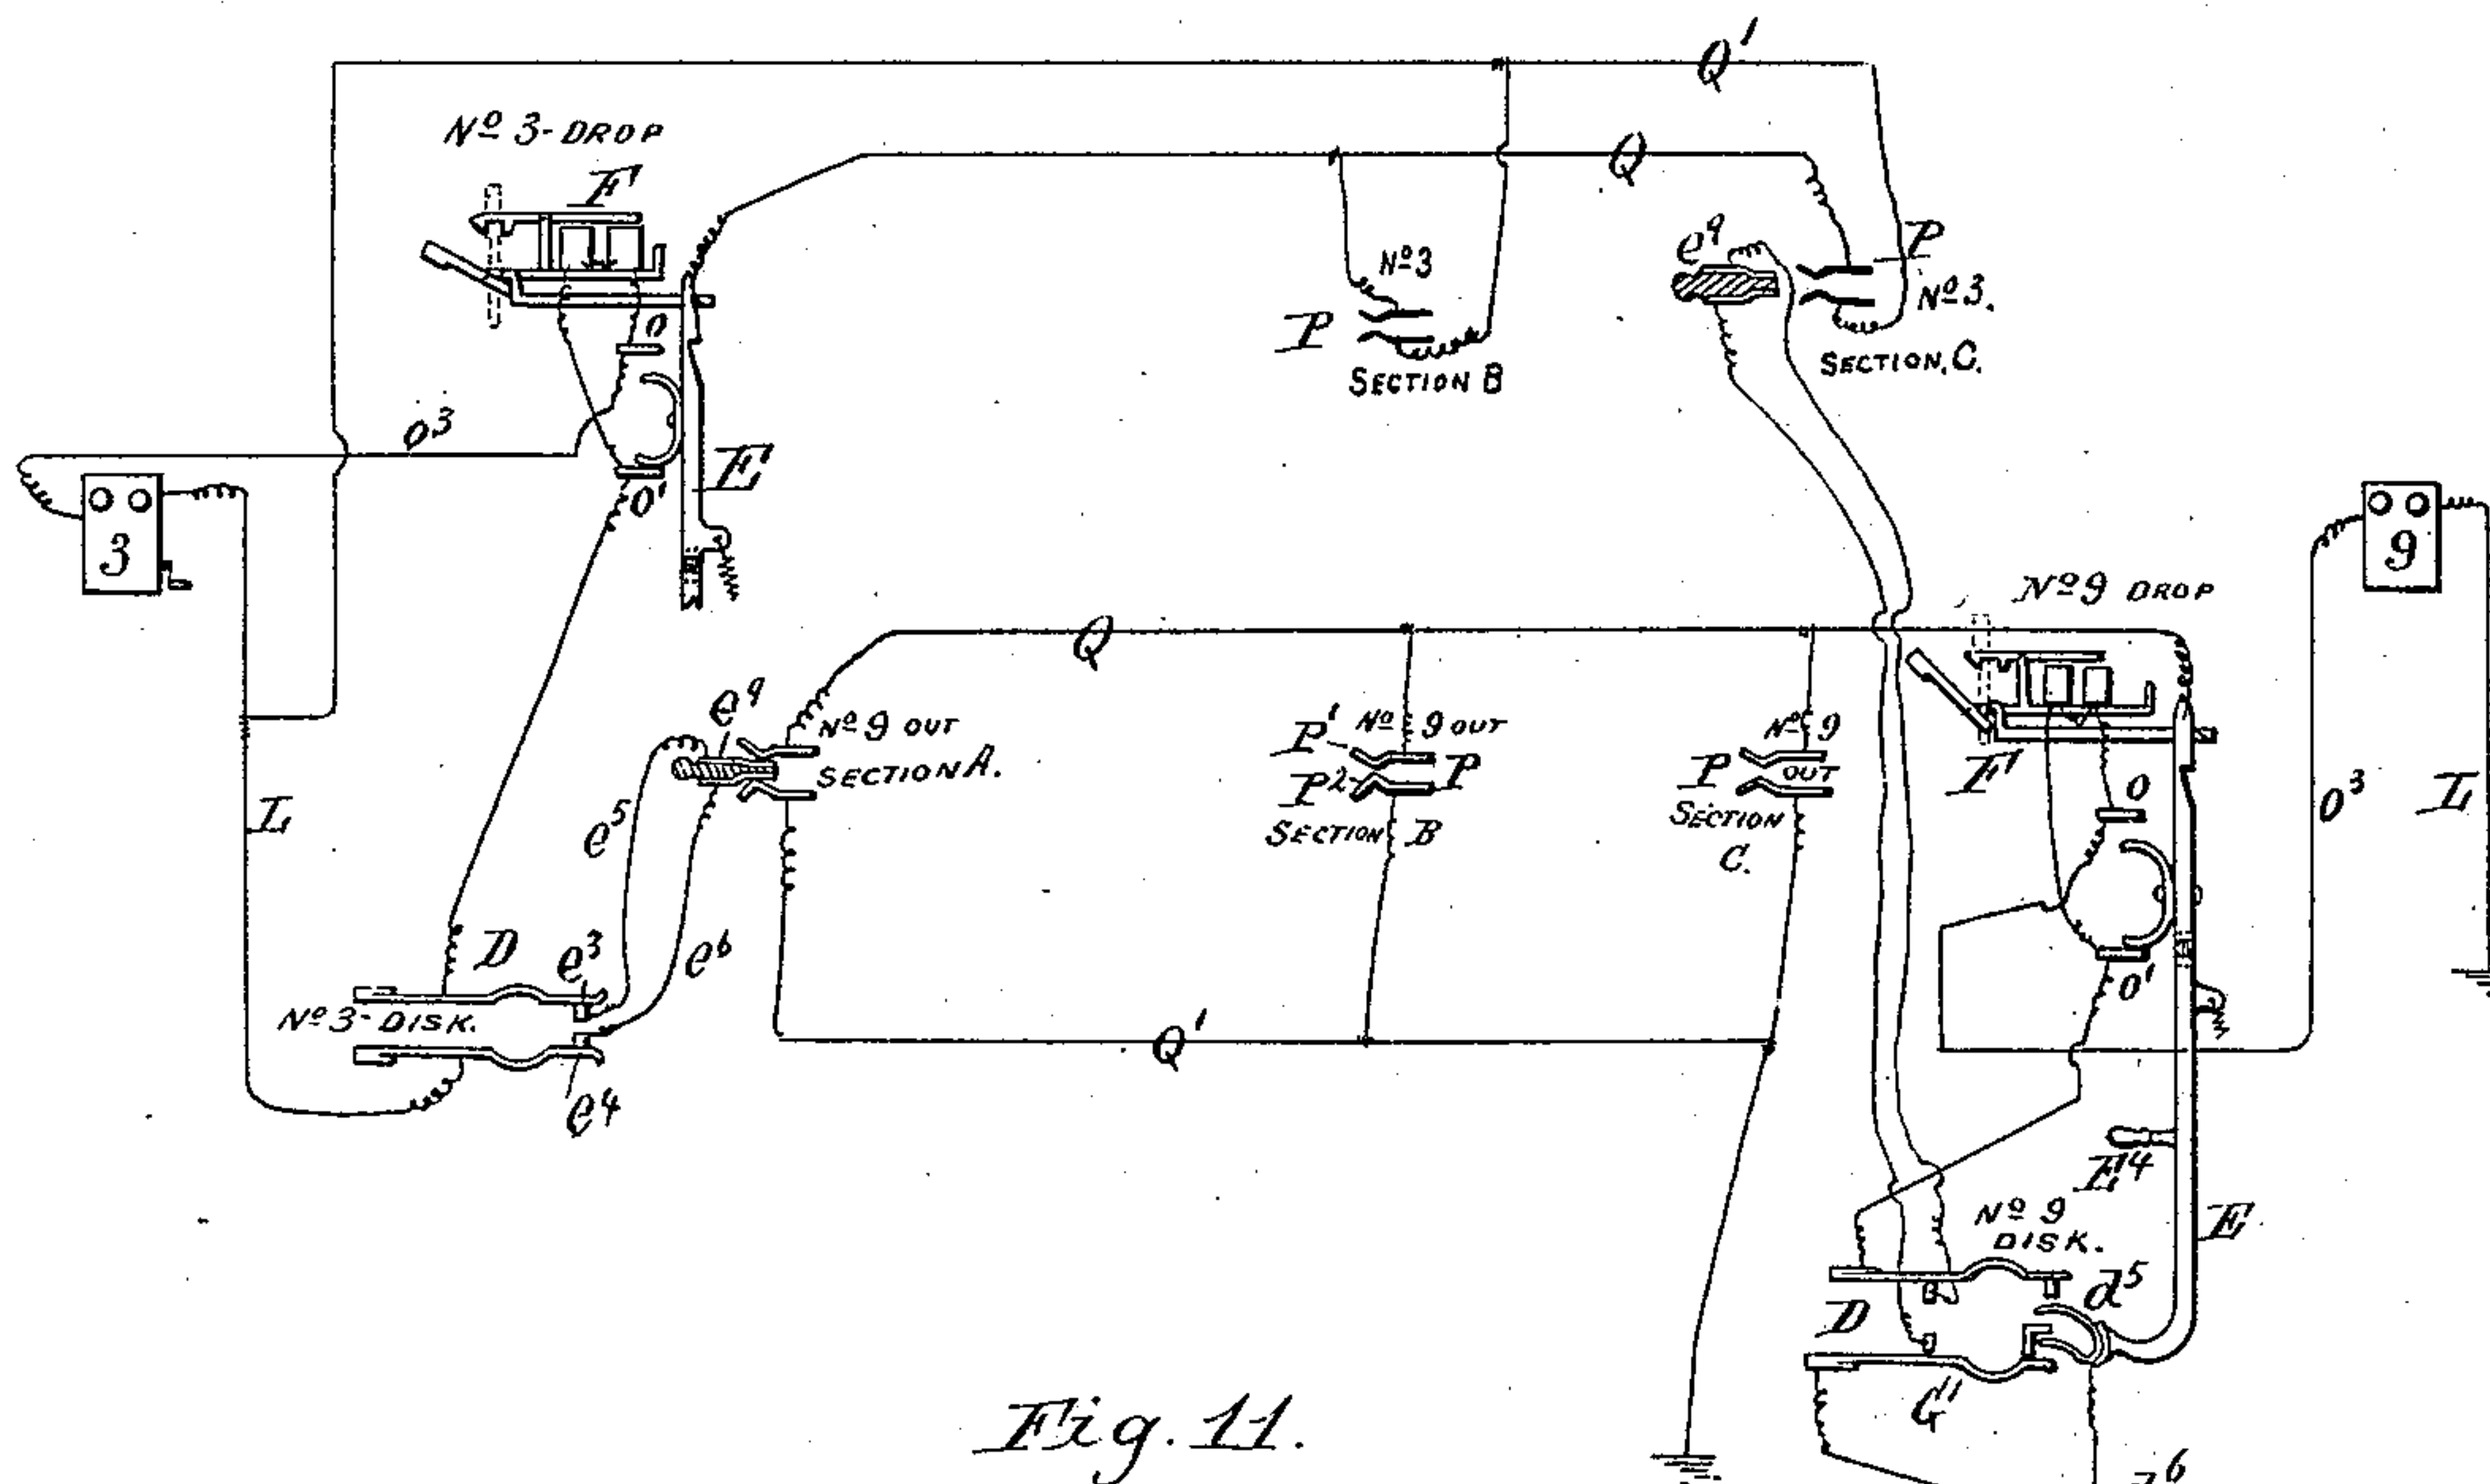 Q¹
Nº 3-DROP
F
Q
e⁹
P
Nº3.
SECTION, C.
Nº3
P
SECTION B
o
o³
E
o'
3
9
Nº 9 DROP
Q
e⁹
Nº 9 OUT
SECTION A.
P¹ Nº 9 OUT
P² P
SECTION B
Nº 9
P OUT
SECTION
C.
F
o
o³
L
L
e⁵
D
e³
e⁶
Nº 3-DISK.
e⁴
Q¹
o'
E⁴
E
Nº 9
DISK.
d⁵
D
G"
Fig. 11.